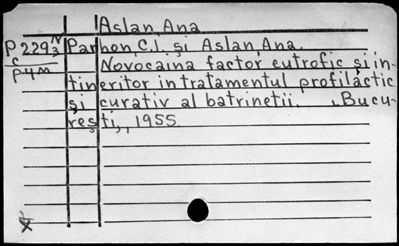 Aslan, Ana
P229.2N Parhon, C.I. și Aslan, Ana.
C
P4M
Novocaina factor eutrofic și în-
tineritor in tratamentul profilactic
și curativ al batrinetii. , Bucu-
rești, 1955